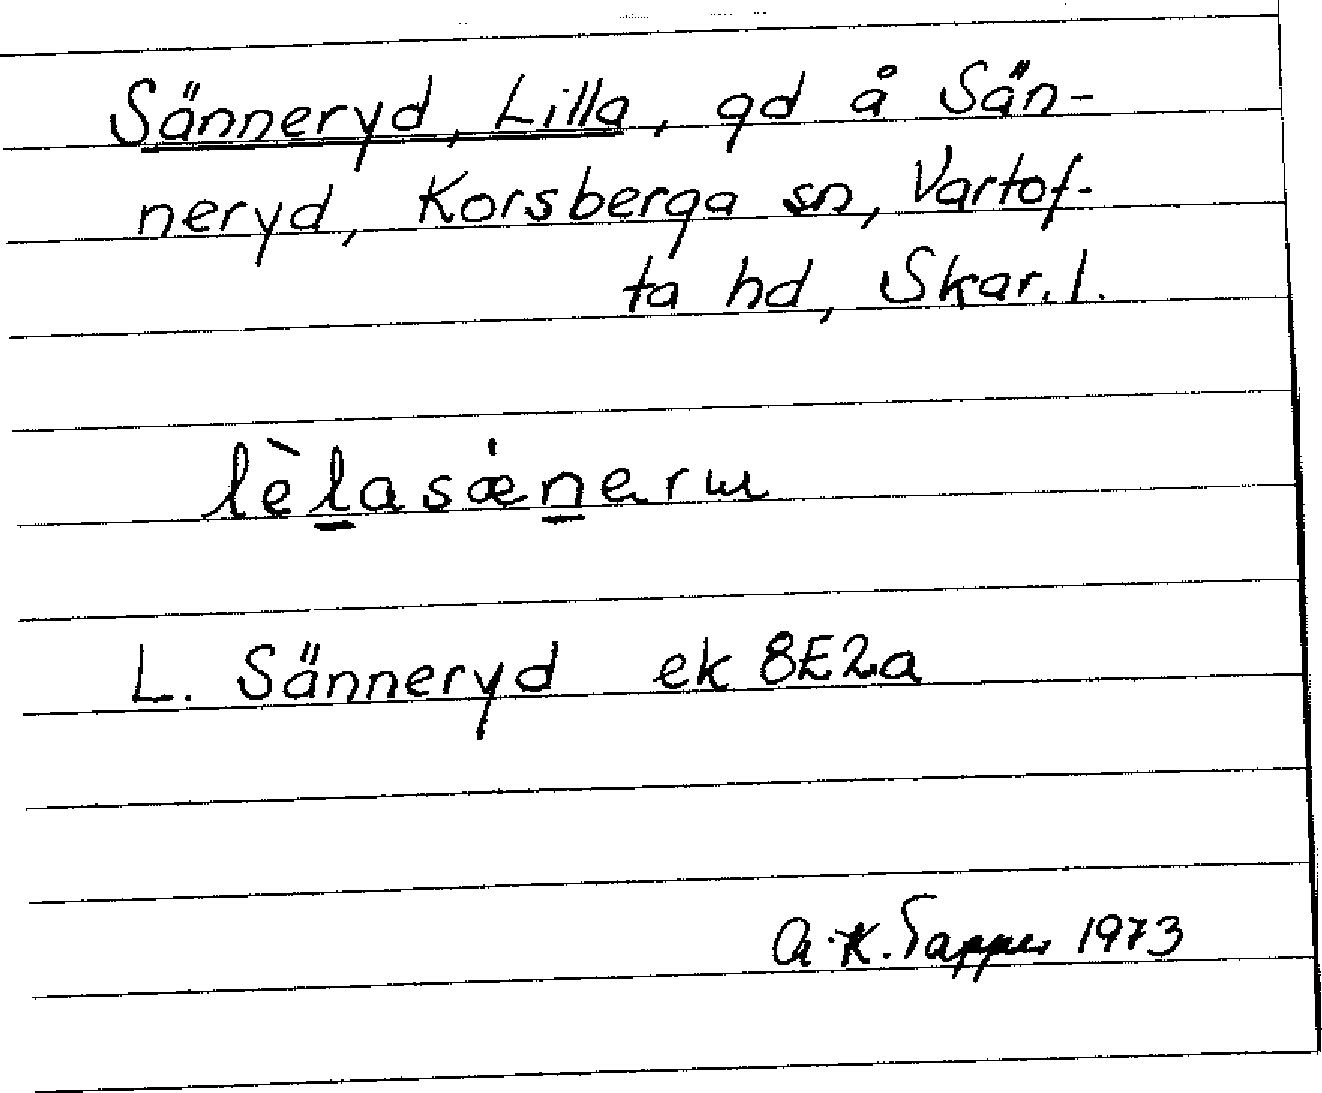 Sänneryd, Lilla, gd å Sän-
neryd, Korsberga sn, Vartof-
ta hd, Skar. l.
lèlasǽnerɯ
L. Sänneryd ek 8E2a
A.-K. Tapper 1973